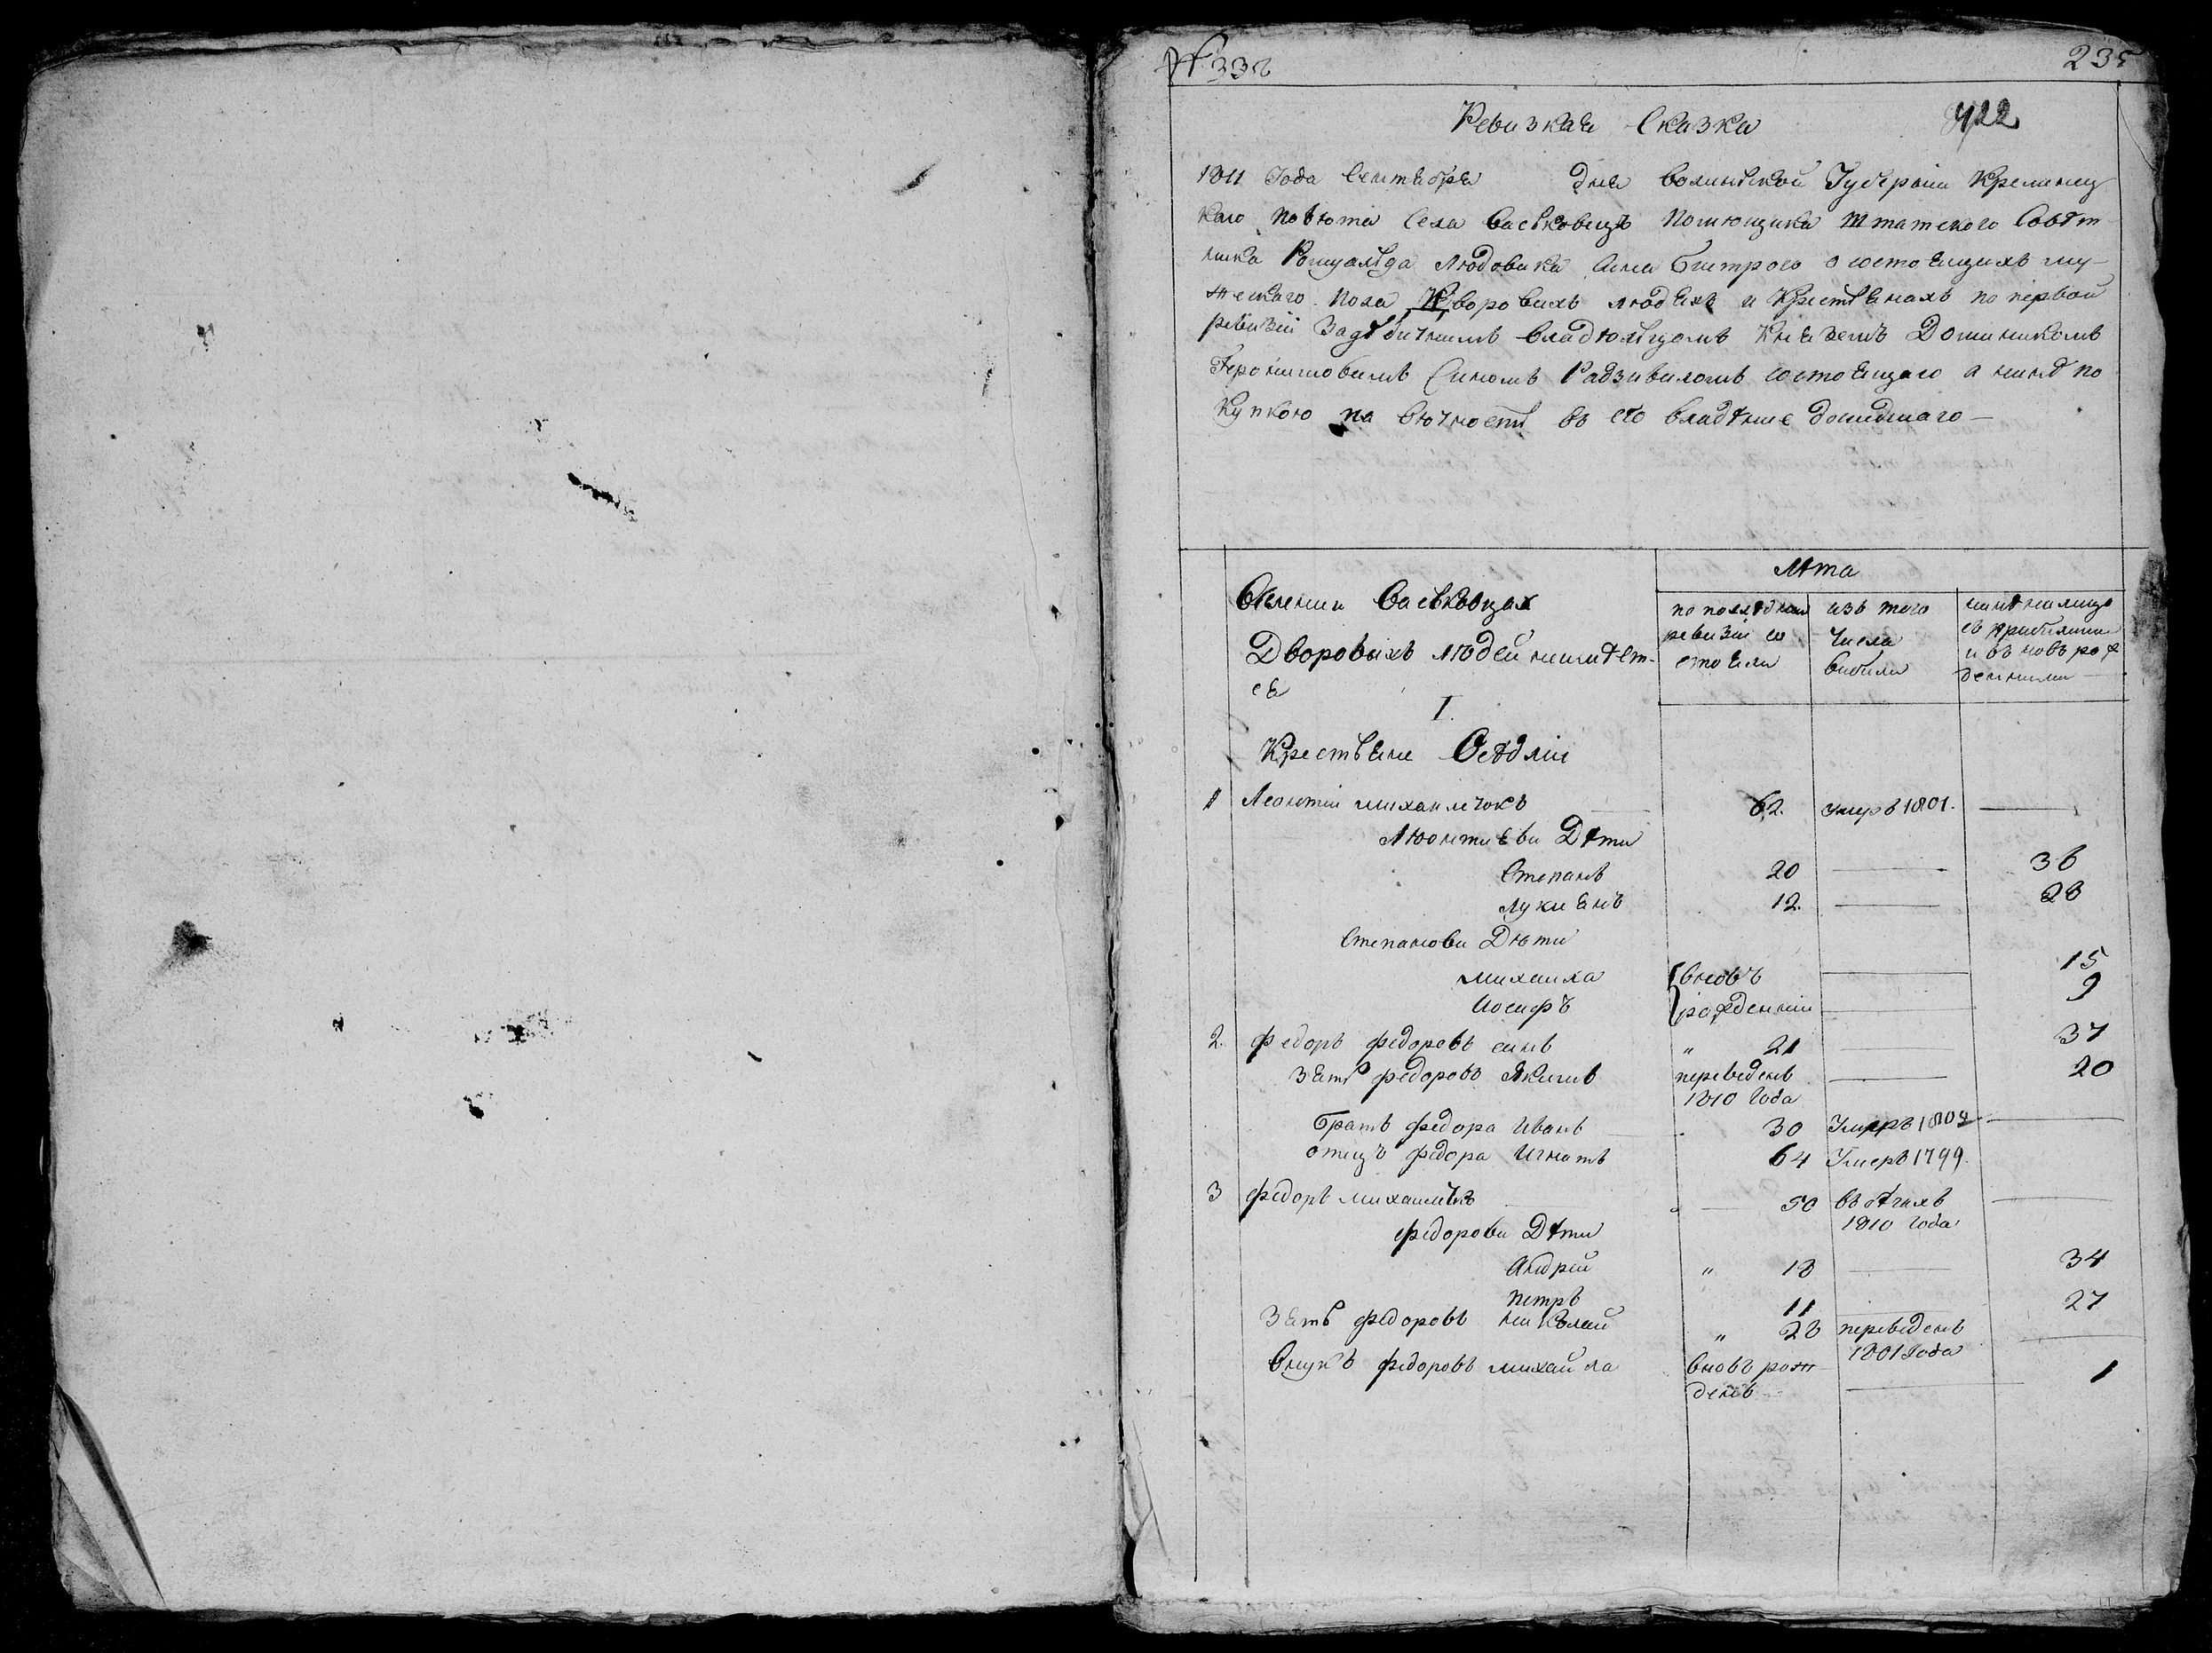 № 332 235
Ревизкая Сказка 422
1811 Года Сентября дня Волинской Губернии Кременец
каго повюта Села Васьковець Помющика Штатского Совѣт
ника Ромуальда Людовика сина Бистрого о состоящихъ му-
жескаго пола Дворовихъ людяхъ и Крестянахъ по первой
ревизіи За дѣдичнимъ владюльцомъ Княземъ Доминикомъ
Геронимовимъ Синомъ Радзивиломъ состоящаго а нинѣ по
купкою на вючность въ его владѣние дошедшаго —
Лѣта
Вселении Васьковцах
Дворовыхъ людей неимѣет-
ся
по последней
ревизіи со
стояли
изъ того
числа
вибили
нинѣ налицо
съ прибилими
и въ новъ рож
денними
I.
Крестьяне Осѣдліи
1 Леонтіи михальчокъ 62. умеръ 1801. —
Люонтиеви Дѣти
Степанъ 20 — 36
Лукиянъ 12. — 28
Степанови Дюти
михаила { вновъ — 15
Иосифъ { рожденніи — 9
2. Федоръ федоровъ синъ " 21 — 37
Зять федоровъ Якимъ переведенъ — 20
1810 Года
братъ федора Иванъ 30 Умеръ 1802 —
отецъ федора Игнатъ 64 Умеръ 1799.
3 федоръ михальчукъ " — 50 въ бѣгахъ —
1810 года
федорови Дѣти
Андрей " 18 — 34
петръ 11 — 27
Зять федоровъ николай " 28 переведенъ —
1801 Года
Внукъ федоровъ михайла вновъ рож — 1
денъ